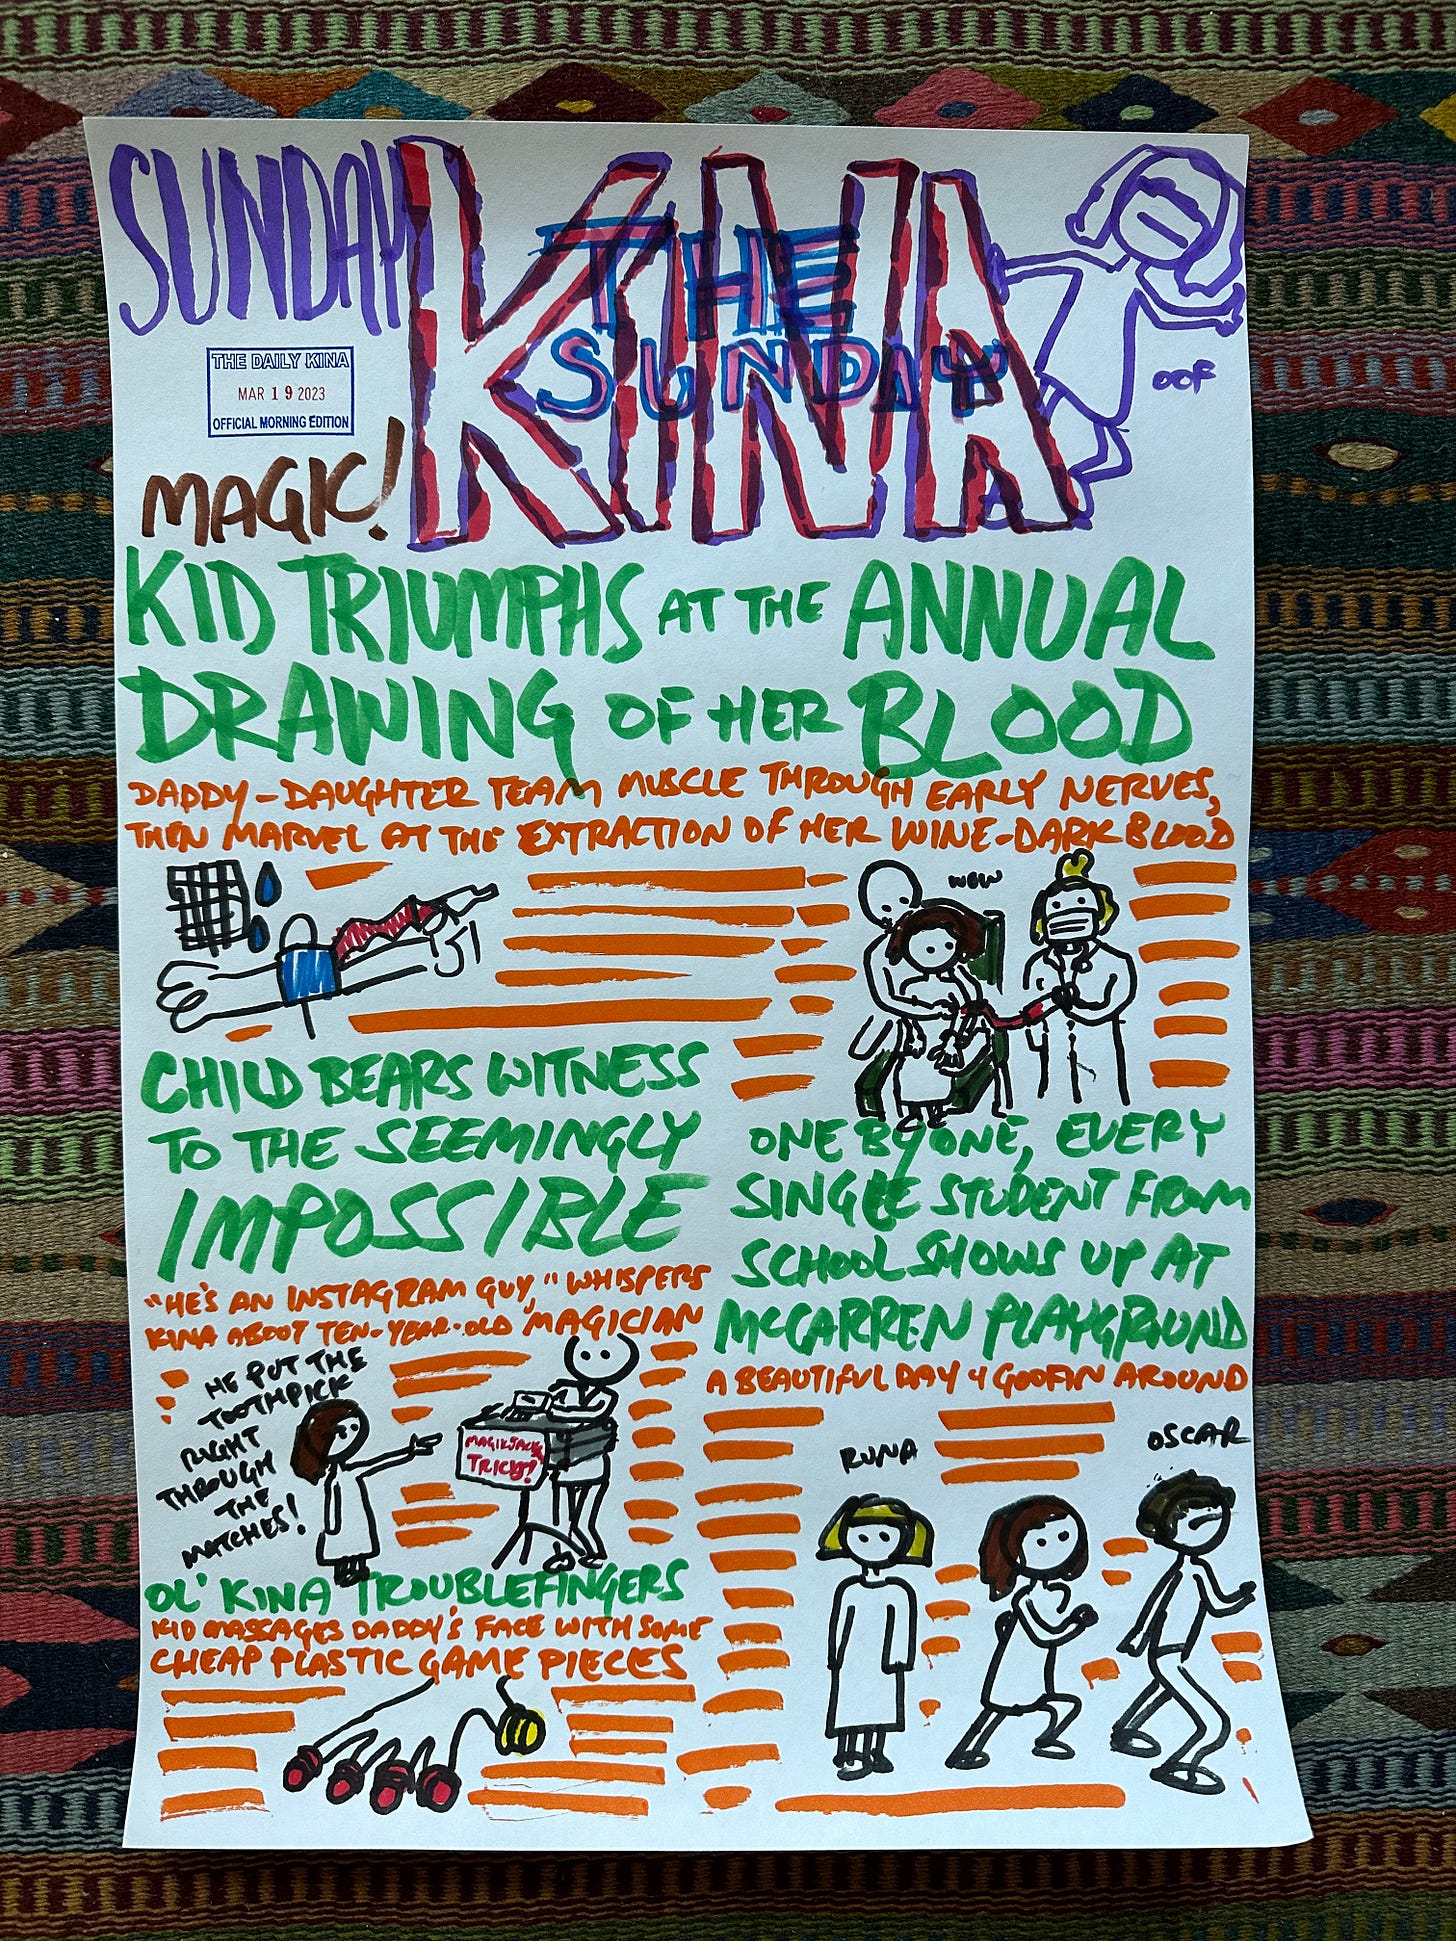 SUNDAY
KINA
THE
SUNDAY
OOF
THE DAILY KINA
MAR 19 2023
OFFICIAL MORNING EDITION
MAGIC!
KID TRIUMPHS AT THE ANNUAL
DRAWING OF HER BLOOD
DADDY-DAUGHTER TEAM MUSCLE THROUGH EARLY NERVES,
THEN MARVEL AT THE EXTRACTION OF HER WINE-DARK BLOOD
WOW
CHILD BEARS WITNESS
TO THE SEEMINGLY
IMPOSSIBLE
"HE'S AN INSTAGRAM GUY," WHISPERS
KINA ABOUT TEN-YEAR-OLD MAGICIAN
HE PUT THE
TOOTHPICK
RIGHT
THROUGH
THE
MATCHES!
MAGIKJACK
TRICKS!
OL' KINA TROUBLEFINGERS
KID MASSAGES DADDY'S FACE WITH SOME
CHEAP PLASTIC GAME PIECES
ONE BY ONE, EVERY
SINGLE STUDENT FROM
SCHOOL SHOWS UP AT
MCCARREN PLAYGROUND
A BEAUTIFUL DAY 4 GOOFIN AROUND
RUNA
OSCAR